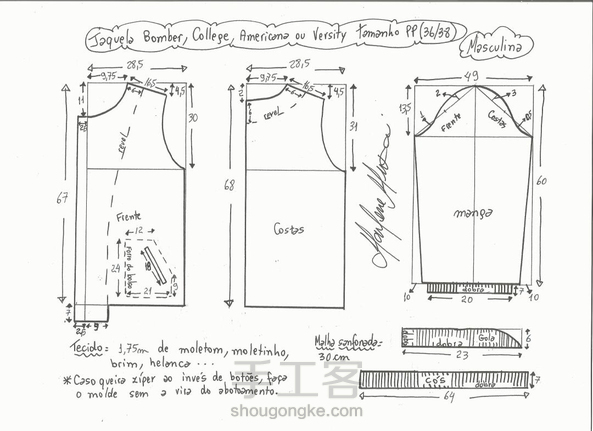 Jaqueta Bomber, College, Americana ou Versity Tamanho PP (36/38)
Masculina
28,5
9,75
16,5
6
4,5
11
30
2,5
revel
67
Frente
12
24
Forro do bolso
18
21
9
7
2,5
9
28,5
9,75
16,5
6
4,5
2
revel
31
68
Costas
Marlene Mukai
49
2
3
13,5
Frente
Costas
60
manga
dobra
7
10
20
10
dobra
Gola
6
23
cós
dobra
7
64
Tecido: 1,75m de moletom, moletinho,
brim, helanca ...
* Caso queira zíper ao invés de botões, faça
o molde sem a vira do abotoamento.
Malha sanfonada:
30cm
手工客
shougongke.com